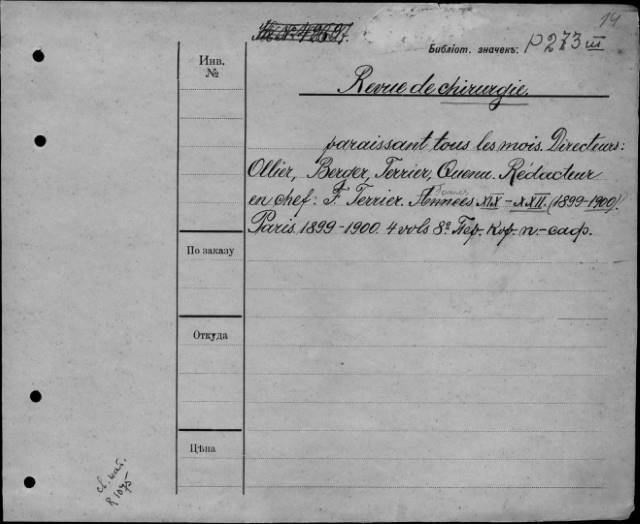 14
№ 42597.
Библіот. значекъ: P 273 III
Инв.
№
Revue de chirurgie
paraissant tous les mois. Directeurs:
Ollier, Berger, Terrier, Quenu. Rédacteur
Tomes
en chef: F. Terrier. Années XIX-XXII. (1899-1900).
Paris 1899-1900. 4 vols 8º Пер. кор. п.-саф.
По заказу
Откуда
Цѣна
св. кат.
R 1075